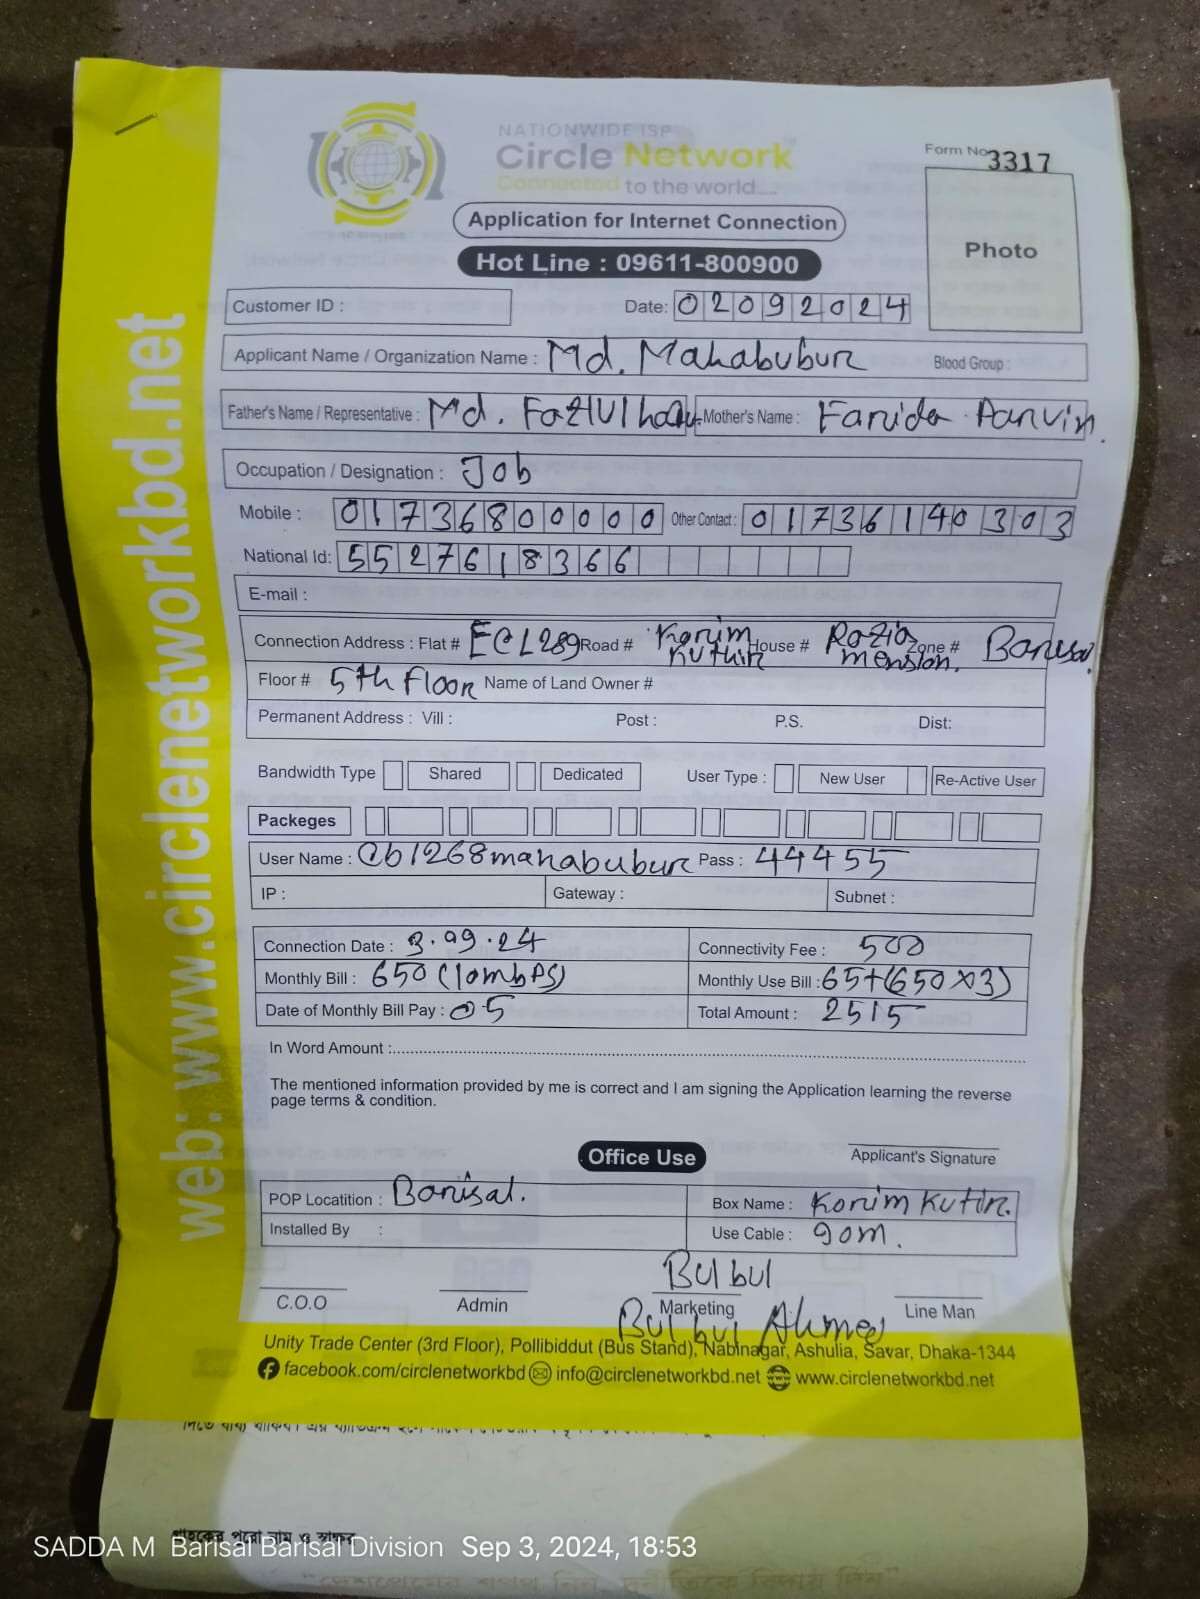 NATIONWIDE ISP
Circle Network
Connected to the world...
Form No 3317
Photo
Application for Internet Connection
Hot Line : 09611-800900
Customer ID :
Date: 02092024
Applicant Name / Organization Name : Md. Mahabubur Blood Group :
Father's Name / Representative : Md. Fazlul Mother's Name : Farida Parvin.
Occupation / Designation : Job
Mobile : 01736800000 Other Contact : 01736140303
National Id: 5527618366
E-mail :
Connection Address : Flat # Road # Karim Kuthir House # Razia mension. Zone # Barisal
Floor # 5th Floor Name of Land Owner #
Permanent Address : Vill : Post : P.S. Dist:
Bandwidth Type Shared Dedicated User Type : New User Re-Active User
Packeges
User Name : cb1268mahabubur Pass : 44455
IP : Gateway : Subnet :
Connection Date : 3.09.24 Connectivity Fee : 500
Monthly Bill : 650 (10mbps) Monthly Use Bill : 65+(650×3)
Date of Monthly Bill Pay : 05 Total Amount : 2515
In Word Amount :
The mentioned information provided by me is correct and I am signing the Application learning the reverse
page terms & condition.
Applicant's Signature
Office Use
POP Locatition : Barisal. Box Name : Korim Kutir.
Installed By : Use Cable : 90m.
Bulbul
C.O.O Admin Marketing Line Man
Bulbul Ahmed
Unity Trade Center (3rd Floor), Pollibiddut (Bus Stand), Nabinagar, Ashulia, Savar, Dhaka-1344
facebook.com/circlenetworkbd info@circlenetworkbd.net www.circlenetworkbd.net
web: www.circlenetworkbd.net
গ্রাহকের পুরো নাম ও স্বাক্ষর
SADDA M Barisal Barisal Division Sep 3, 2024, 18:53
"দেশপ্রেমের শপথ নিন, দুর্নীতিকে বিদায় দিন"